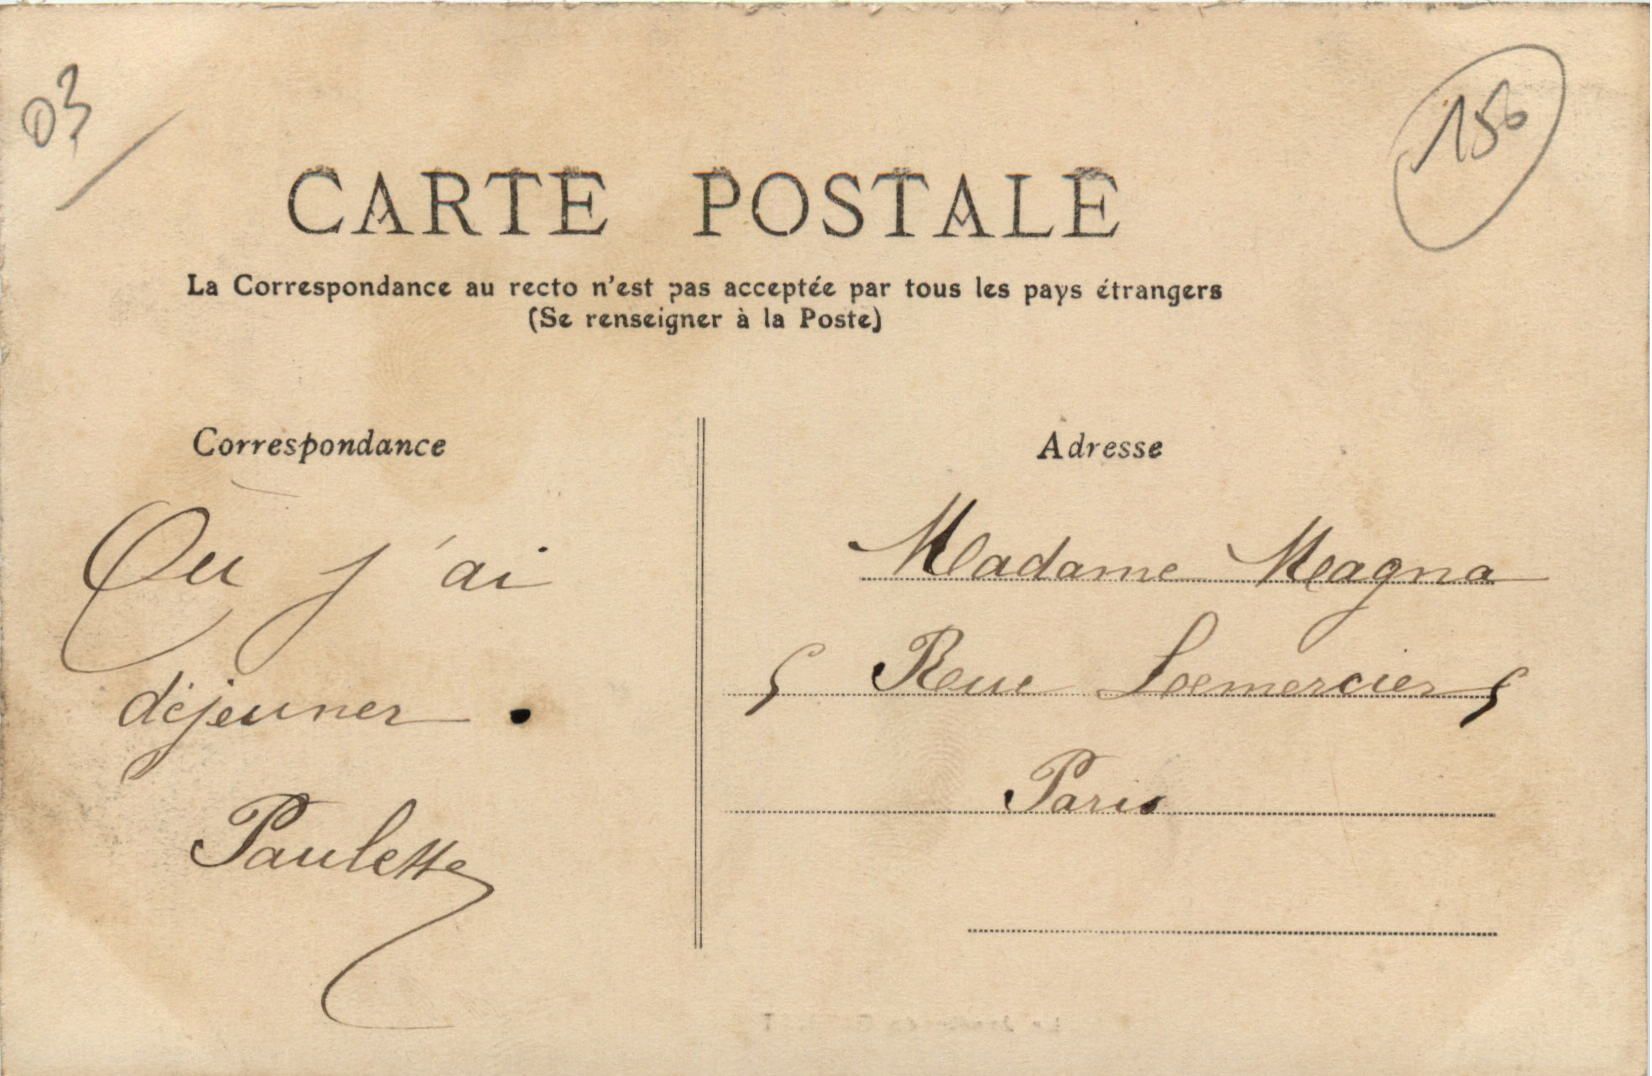 03
150
CARTE POSTALE
La Correspondance au recto n'est pas acceptée par tous les pays étrangers
(Se renseigner à la Poste)
Correspondance
Où j'ai
déjeuner.
Paulette
Adresse
Madame Magna
5 Rue Lemercier 5
Paris